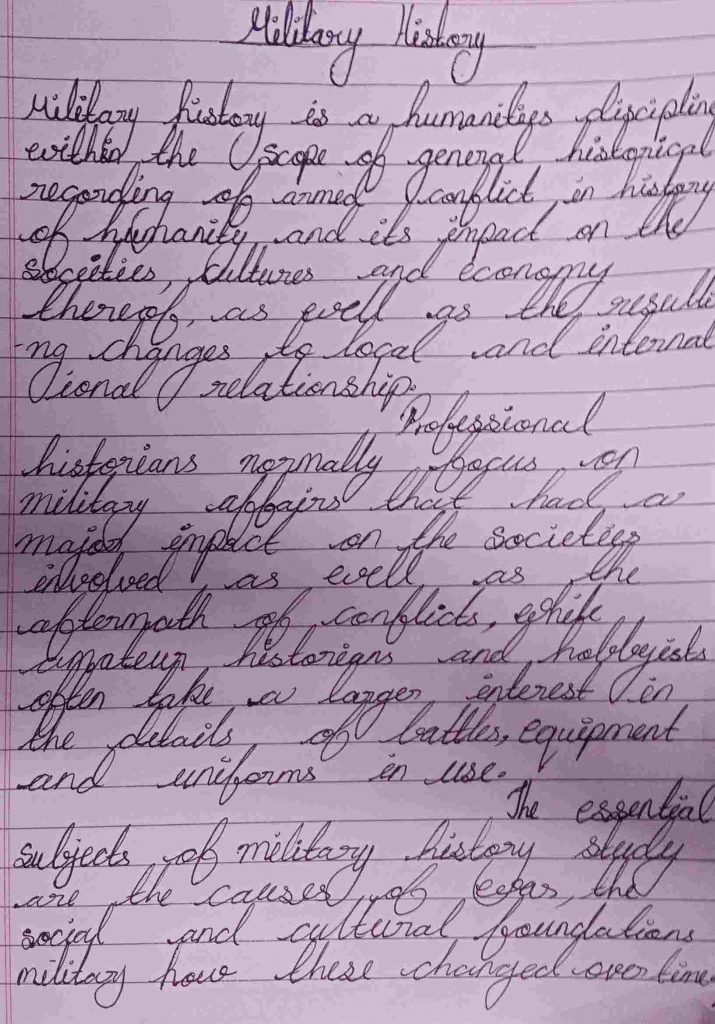 Military History
Military history is a humanities discipline
within the scope of general historical
recording of armed conflict in history
of humanity, and its impact on the
societies, cultures and economy
thereof, as well as the resulti
-ng changes to local and internat
ional relationship.
Professional
historians normally focus on
military affairs that had a
major impact on the societies
involved as well as the
aftermath of conflicts, while
amateur historians and hobbyists
often take a larger interest in
the details of battles, equipment
and uniforms in use.
The essential
subjects of military history study
are the causes of war, the
social and cultural foundations
military how these changed over time.